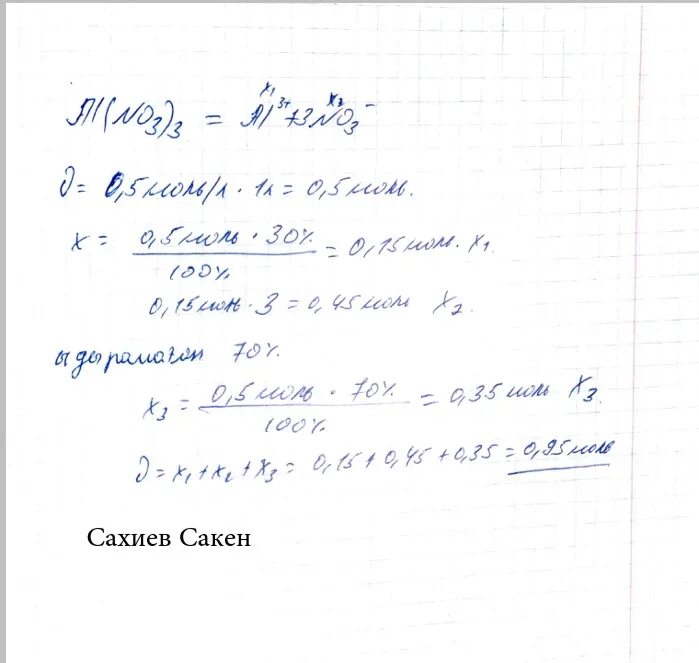 x₁ x₂
Al(NO₃)₃ = Al³⁺ + 3NO₃⁻
∂ = 0,5 моль/л · 1л = 0,5 моль.
x = 0,5 моль · 30% / 100% = 0,15 моль. x₁
0,15 моль · 3 = 0,45 моль x₂
ыдырамаган 70%.
x₃ = 0,5 моль · 70% / 100% = 0,35 моль x₃
∂ = x₁ + x₂ + x₃ = 0,15 + 0,45 + 0,35 = 0,95 моль
Сахиев Сакен